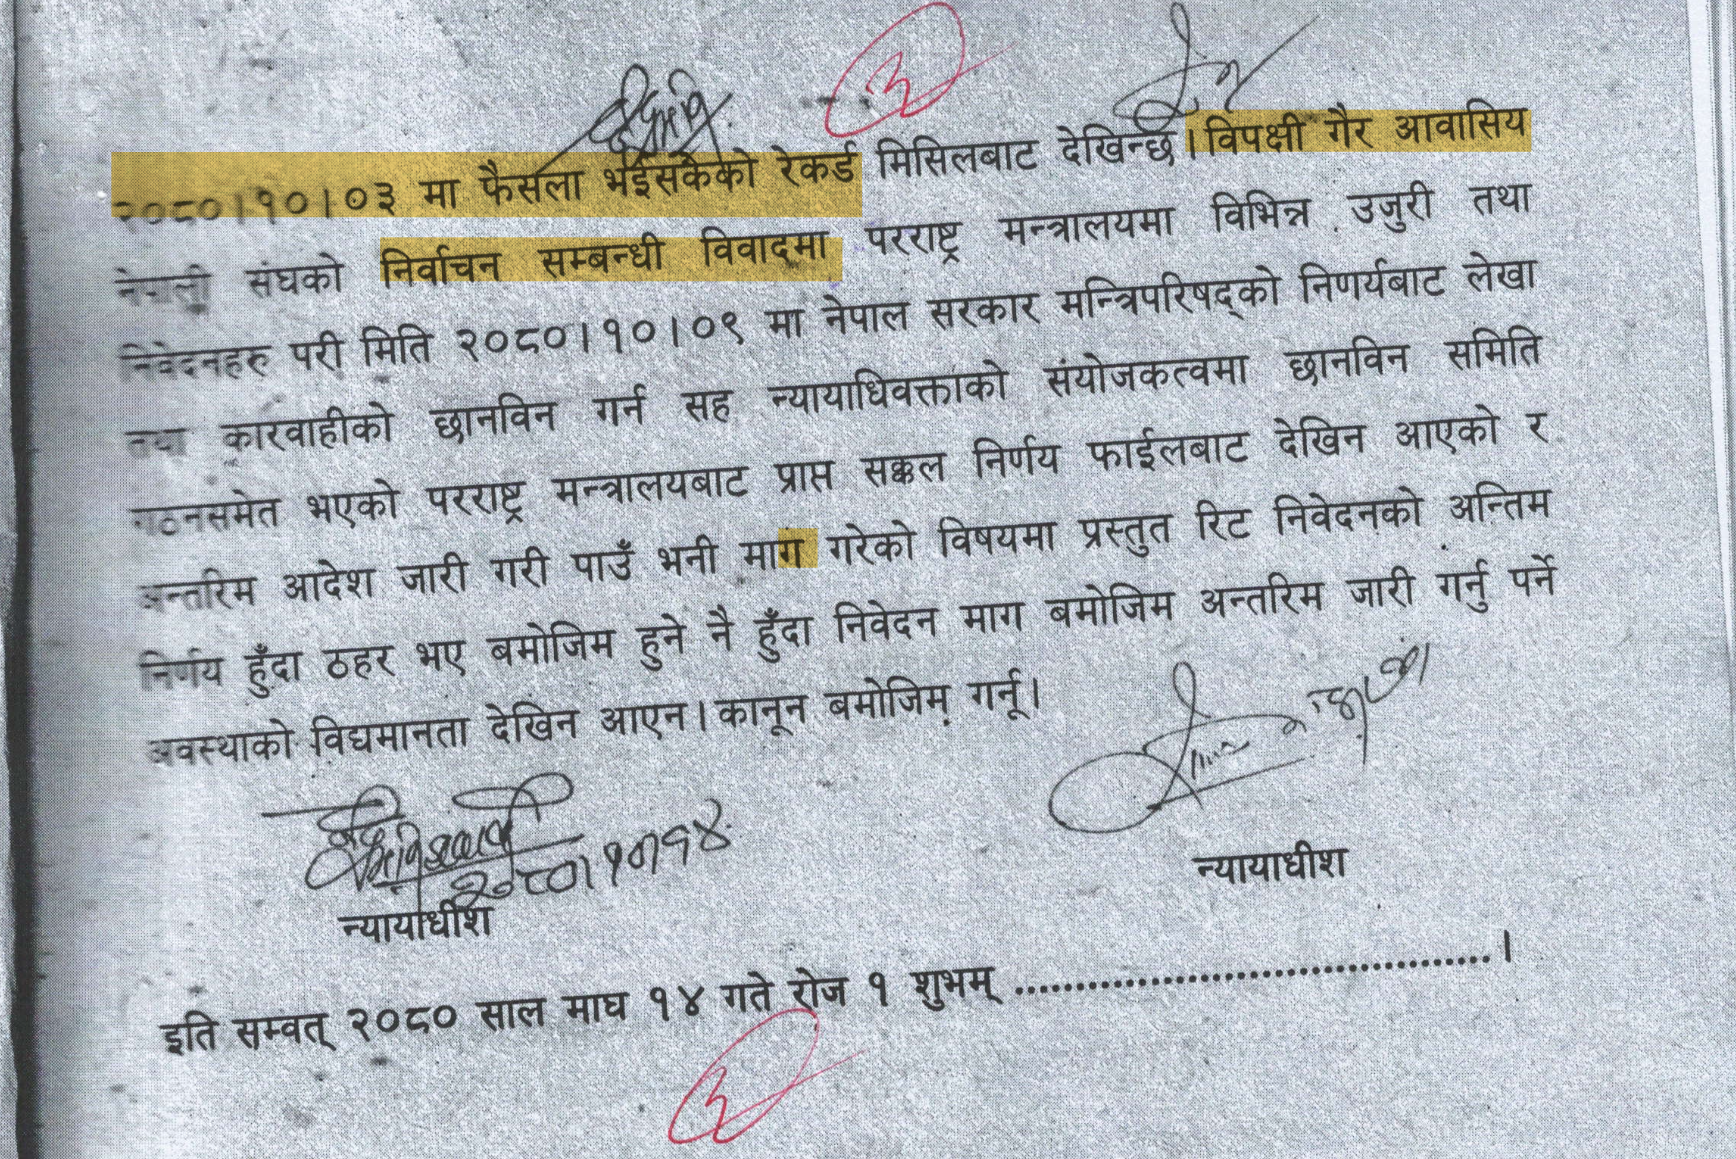 २०८०।१०।०३ मा फैसला भईसकेको रेकर्ड मिसिलबाट देखिन्छ। विपक्षी गैर आवासिय
नेपाली संघको निर्वाचन सम्बन्धी विवादमा परराष्ट्र मन्त्रालयमा विभिन्न उजुरी तथा
निवेदनहरु परी मिति २०८०।१०।०९ मा नेपाल सरकार मन्त्रिपरिषद्को निणर्यबाट लेखा
तथा कारवाहीको छानविन गर्न सह न्यायाधिवक्ताको संयोजकत्वमा छानविन समिति
गठनसमेत भएको परराष्ट्र मन्त्रालयबाट प्राप्त सक्कल निर्णय फाईलबाट देखिन आएको र
अन्तरिम आदेश जारी गरी पाउँ भनी माग गरेको विषयमा प्रस्तुत रिट निवेदनको अन्तिम
निर्णय हुँदा ठहर भए बमोजिम हुने नै हुँदा निवेदन माग बमोजिम अन्तरिम जारी गर्नु पर्ने
अवस्थाको विद्यमानता देखिन आएन। कानून बमोजिम गर्नू।
२०८०।१०।१४
न्यायाधीश
न्यायाधीश
इति सम्वत् २०८० साल माघ १४ गते रोज १ शुभम् ......................................।